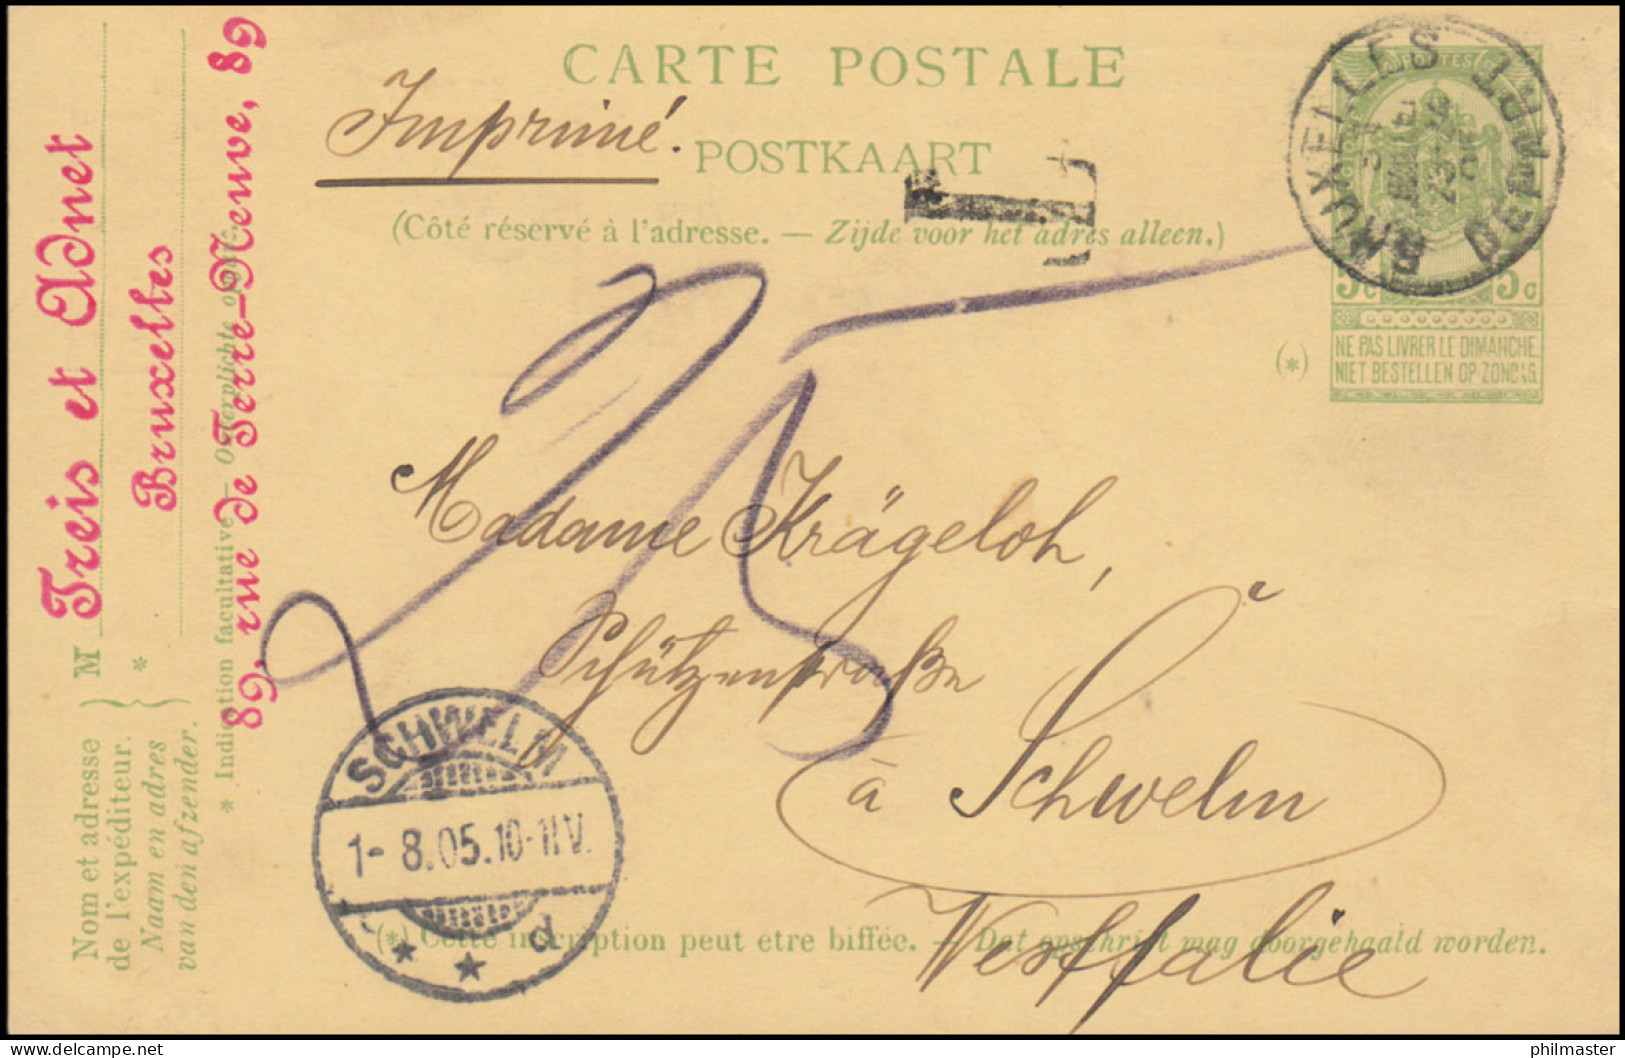 CARTE POSTALE
Imprimé.
POSTKAART
(Côté réservé à l'adresse. — Zijde voor het adres alleen.)
T
BRUXELLES DÉPART
5c 5c
(*)
NE PAS LIVRER LE DIMANCHE
NIET BESTELLEN OP ZONDAG.
25
Madame Krägeloh,
Schützenstraße
à Schwelm
Westfalie
SCHWELM
1-8.05.10-11V.
* * d
(*) Cette inscription peut etre biffée. — Dat opschrift mag doorgehaald worden.
Nom et adresse
de l'expéditeur.
Naam en adres
van den afzender.
M
*
Treis et Adnet
Bruxelles
89, rue de Terre-Neuve, 89
* Indication facultative — Onverplichte
philmaster